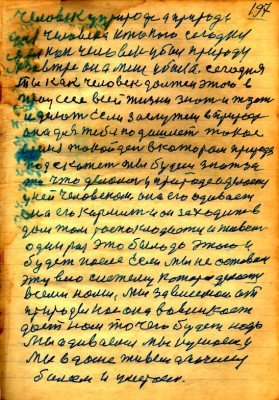 197
Человек у природе а природа
человека кто кого сегодня
человек убил природу
завтра она меня убила. сегодня
ты как человек должен этого в
процессе всей жизни знать и ждать
и делать если заслужен в природе
она для тебя подошлет такое
такой день в котором природа
подскажет ты будеш знать за
то что делалось у природе а делалось
у ней человеком, она его одевает
она его кормит и он заходит в
дом там господствует и живет
один раз это было до этого и
будет после если мы не остановим
эту всю систему которая делается
всеми нами, мы зависимы от
природы нас она
дает нам то чего будет надо
мы одиваемся мы кушаем у
мы в доме живем а почему
болеем и умираем.